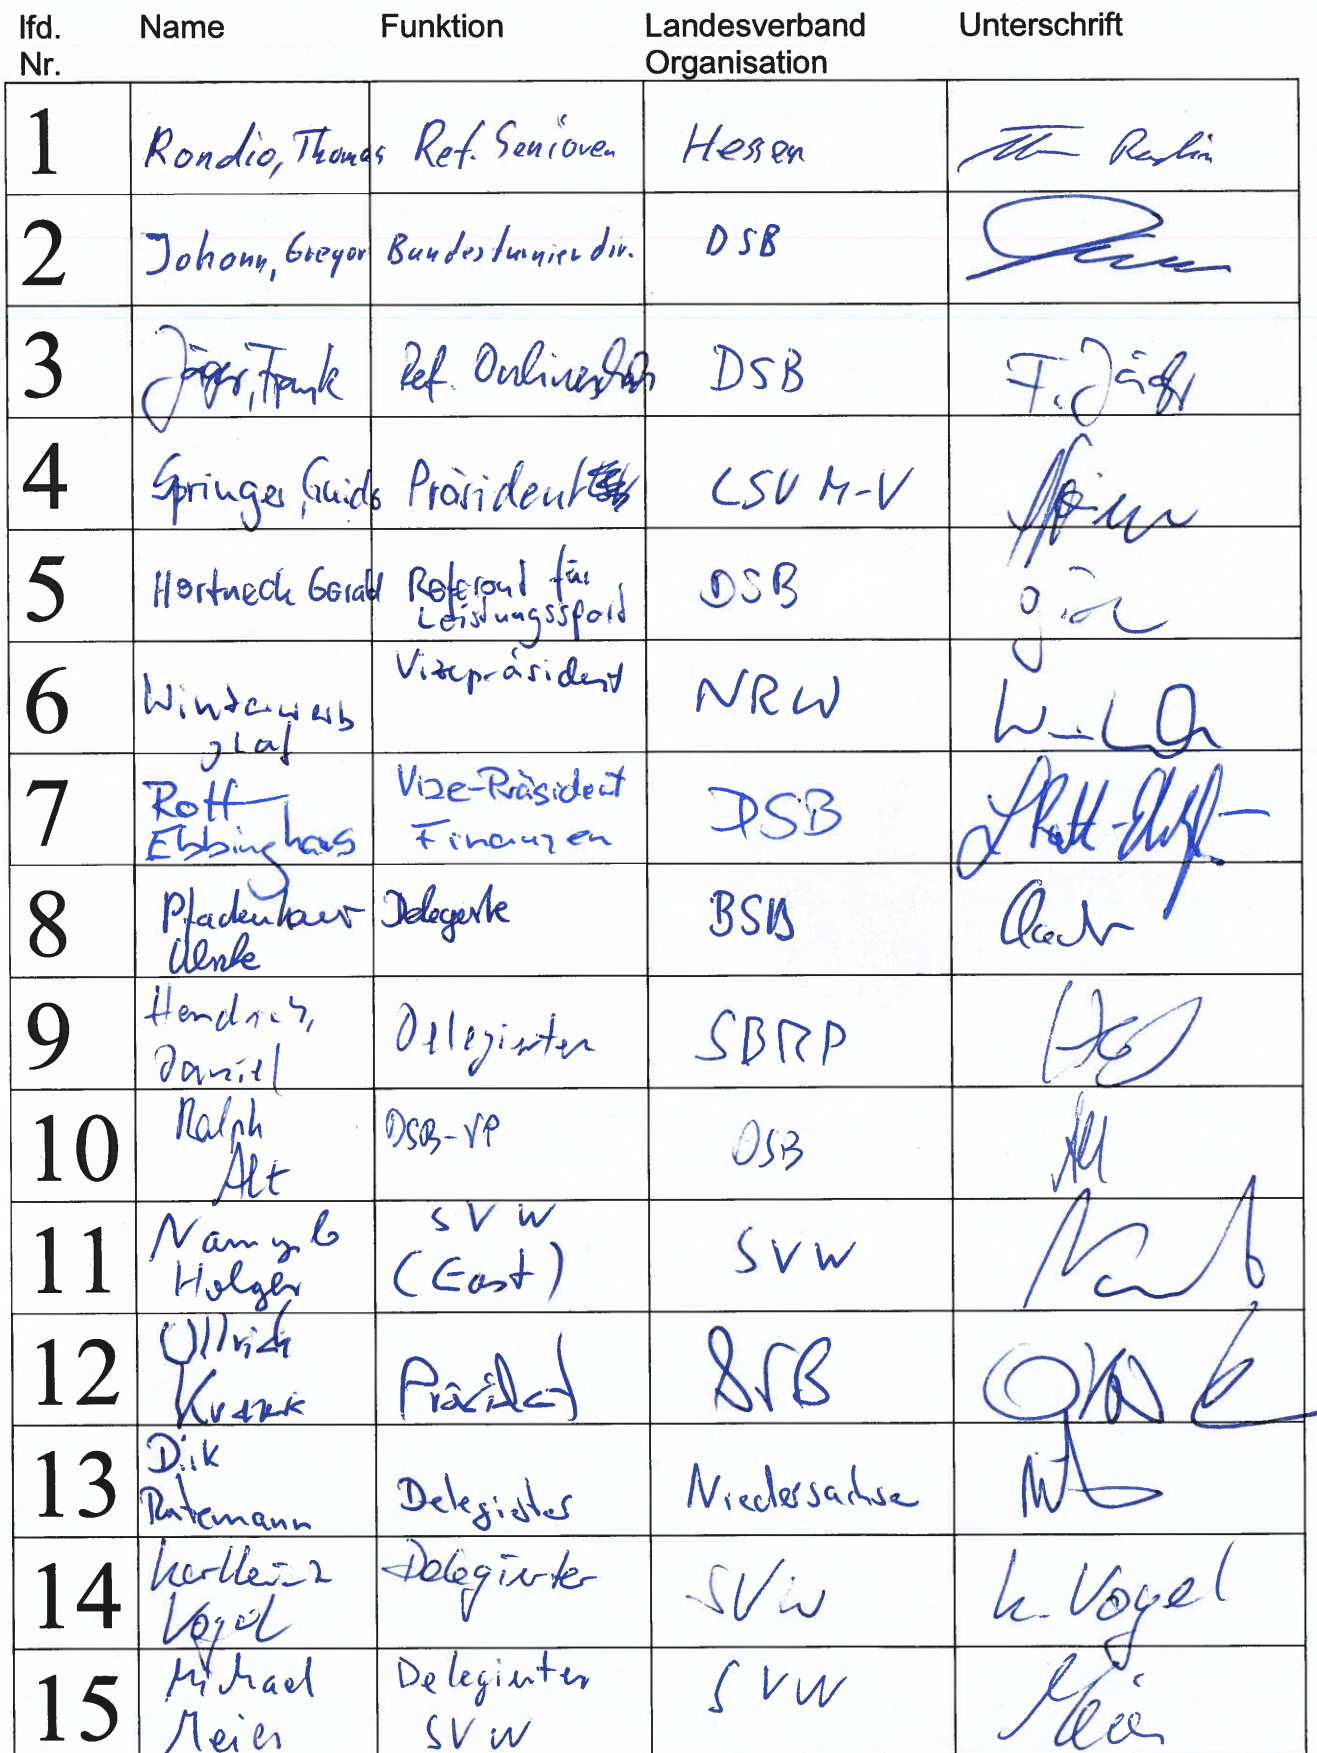 lfd. Nr. Name Funktion Landesverband Organisation Unterschrift
1 Rondio, Thomas Ref. Senioren Hessen
2 Johann, Gregor Bundesturnierdir. DSB
3 Jäger, Frank Ref. Onlineschach DSB F. Jäger
4 Springer, Guido Präsident LSV M-V
5 Hertneck Gerald Referent für Leistungssport DSB
6 Winterwerb Olaf Vizepräsident NRW
7 Rott-Ebbinghaus Vize-Präsident Finanzen DSB
8 Pfadenhauer Ulrike Delegierte BSB
9 Hendrich, Daniel Delegierter SBRP
10 Ralph Alt DSB-VP DSB Alt
11 Namyslo Holger SVW (Gast) SVW
12 Ullrich Krause Präsident DSB
13 Dirk Rütemann Delegierter Niedersachsen
14 Karlheinz Vogel Delegierter SVW K. Vogel
15 Michael Meier Delegierter SVW SVW Meier